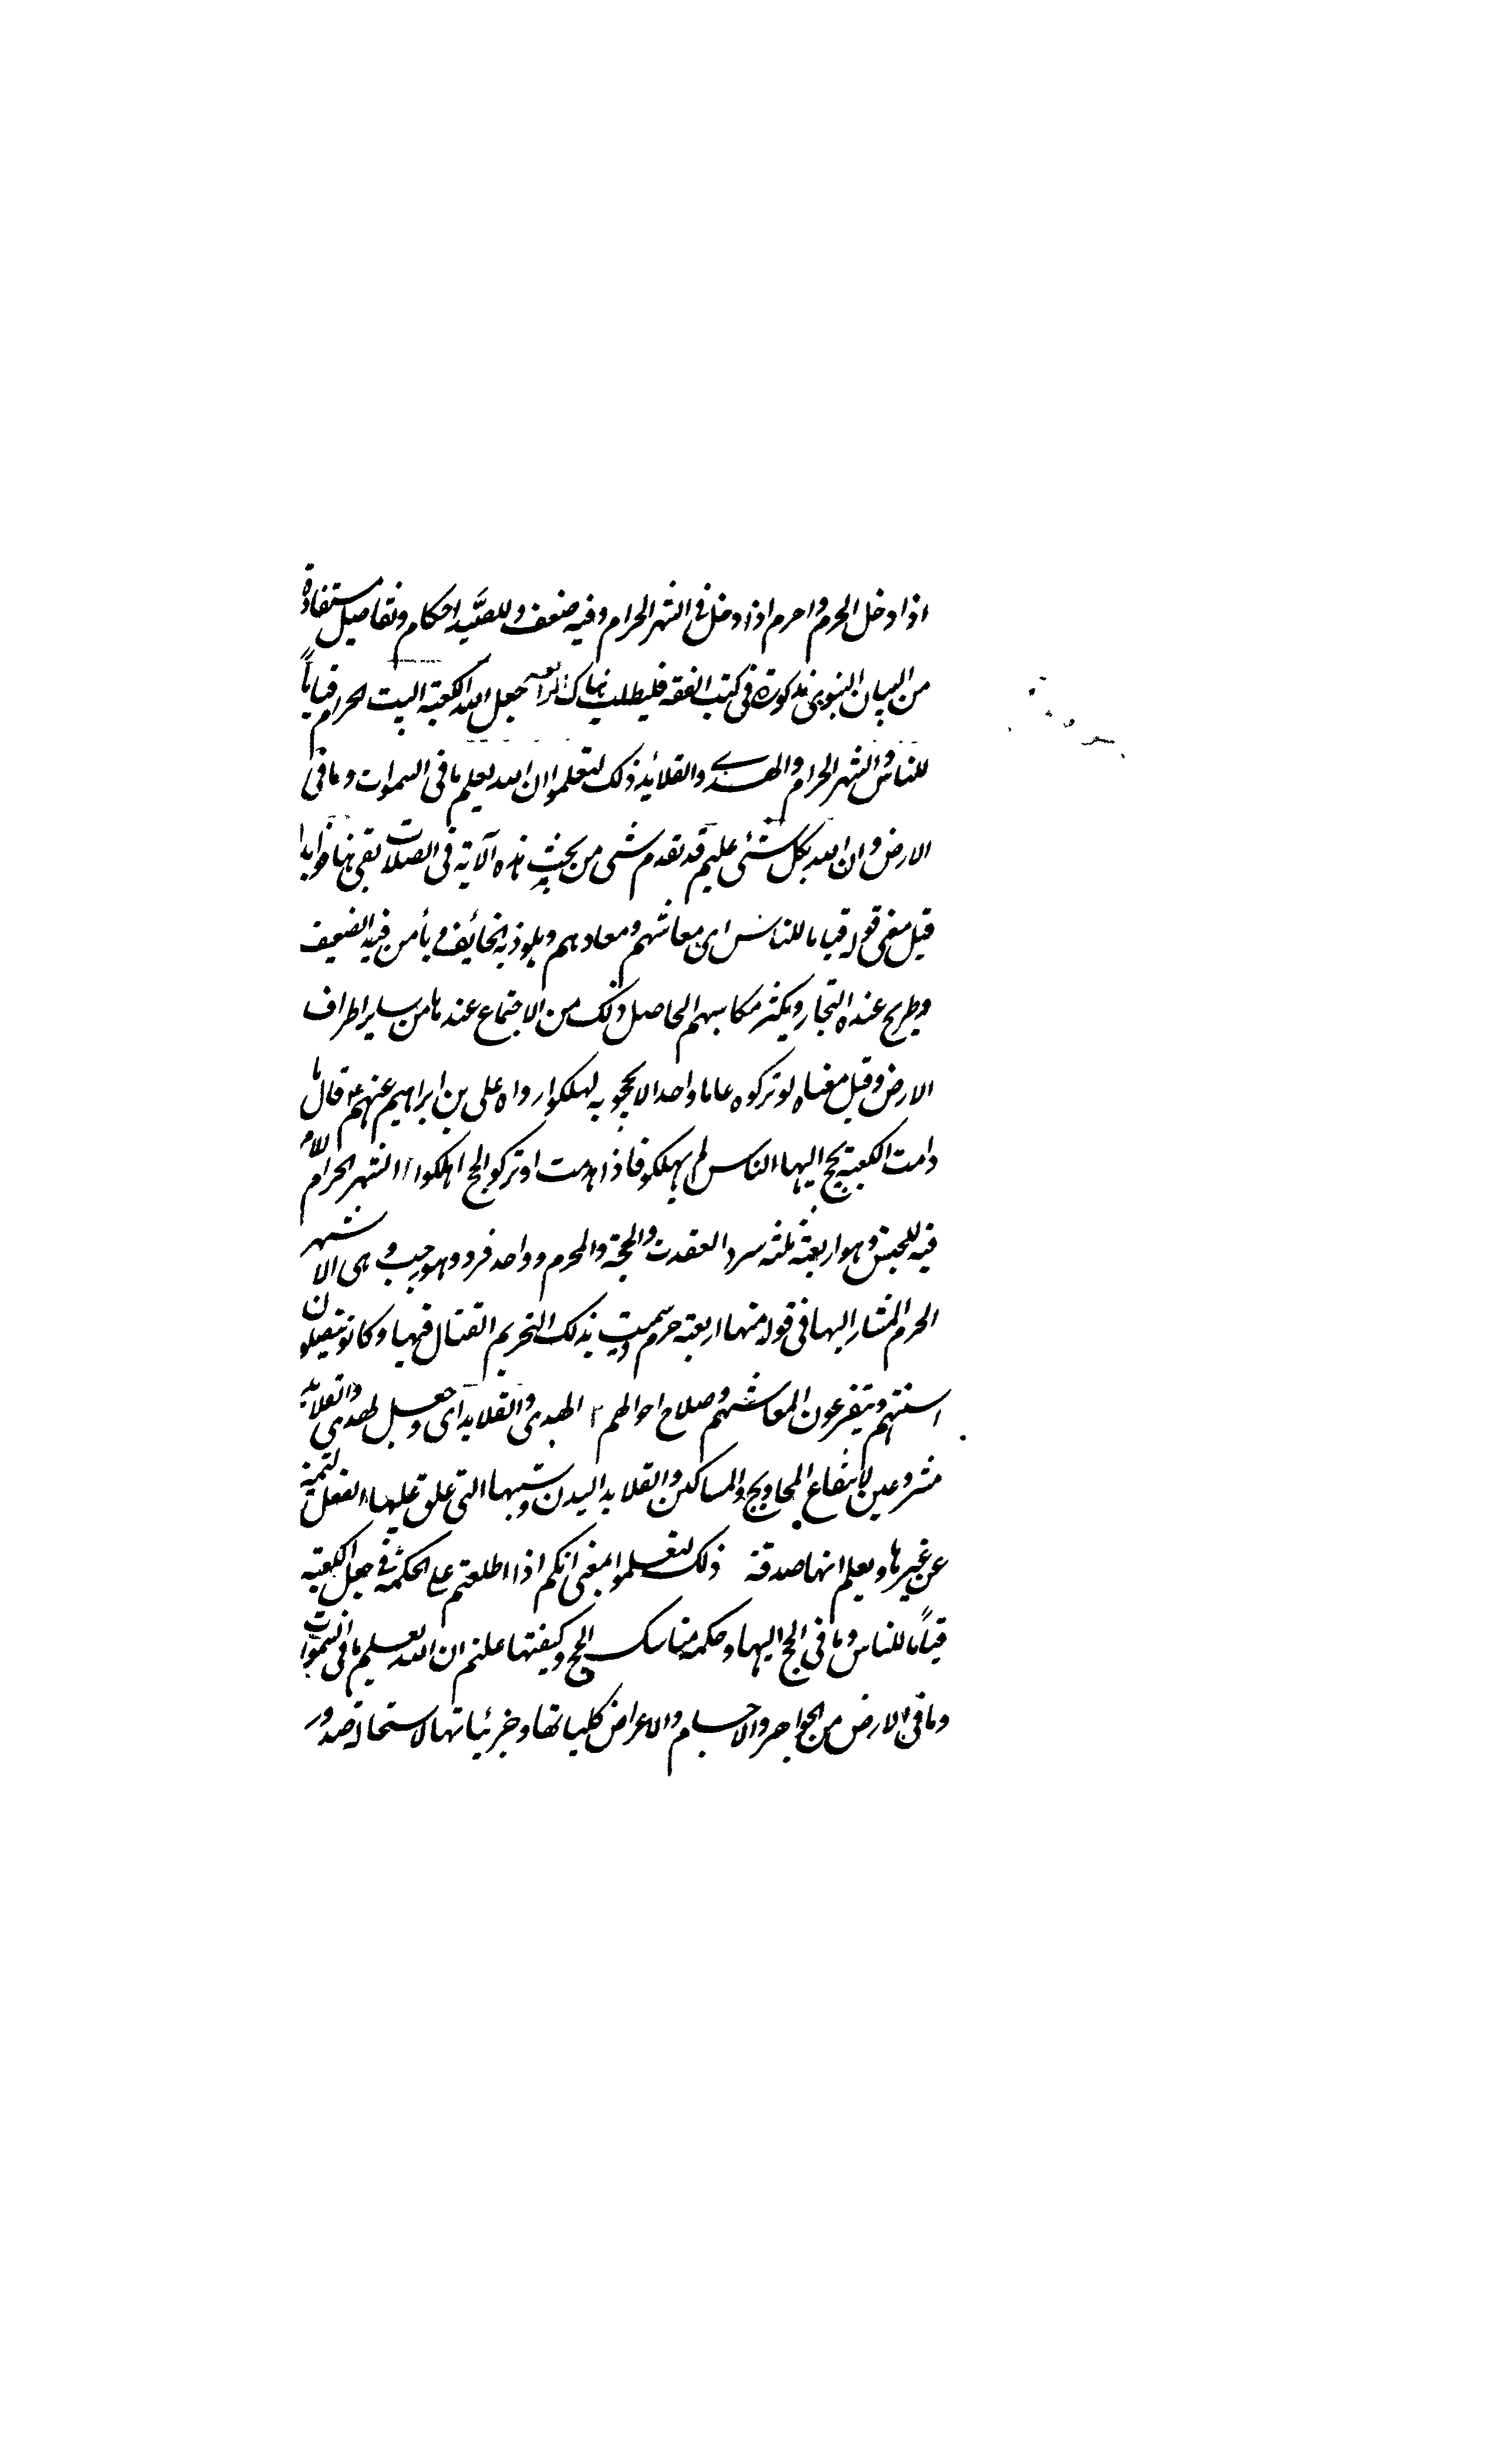 اذا دخل الحرم واحرم اذا دخل فى الشهر الحرام وفيه ضعف وللصَّيد احكام وتفاصيل مستفادة
من البيان النبوى مذكورة فى كتب الفقه فليطلب هناك الرابعة جعل الله الكعبة البيت الحرام قياماً
للناس والشهر الحرام والهدى والقلائد ذلك لتعلموا ان الله يعلم ما فى السموات وما فى
الارض وان الله بكل شئى عليم قد تقدم شى من بحث هذه الآية فى الصلات بقى هنا فوايد ا
قيل معنى قوله قياما للناس اى معاشهم ومعادهم ويلوذ به الخائف ويأمن فيه الضعيف
ويطرح عنده التجار ويكثر مكاسبهم الحاصل ذلك من الاجتماع عندها من ساير اطراف
الارض وقيل معناه لو تركوه عاما واحدا لا يحجوبه لهلكوا رواه على بن ابراهيم عنهم ع قال ما
دامت الكعبة يحج اليها الناس لم يهلكو فاذا هدمت او تركو الحج اهلكوا ٢ الشهر الحرام اللام
فيه للجنس وهو اربعة ثلثه سرد العقدت والحجة والمحرم وواحد فرد وهو رجب وهى الاشهر
الحرم المشار اليها فى قوله منها اربعة حرم سميت بذلك التحريم القتال فيها وكانو ينصلون
اسنتهم ويتفرغون المعاشهم وصلاح احوالهم ٣ الهدى والقلايد اى وجعل الهدى والقلايد
مشروعين لانتفاع المحاويج والمساكين والقلايد البدن وشبهها التى علق عليها النعل لتميز
عن غيرها ويعلم انها صدقة ذلك لتعلموا بمعنى انكم اذا اطلعتم على الحكمة فى جعل الكعبة
قياماً للناس وما فى الحج اليها وحكمه مناسك الحج وكيفتها علمتم ان الله يعلم ما فى السموات
وما فى الارض من الجواهر والاجسام والاعراض كلياتها وجزئياتها لاستحالة صدور